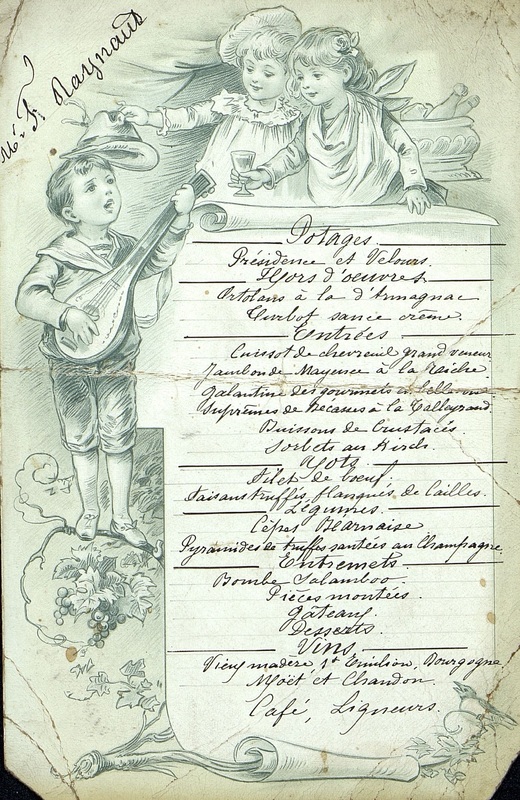 Mr F. Raynaud
Potages
Présidence et Velours.
Hors d'oeuvres
Ortolans à la d'Armagnac
Turbot sauce crème.
Entrées
Cuissot de chevreuil grand veneur
Jambon de Mayence à la
Galantine des gourmets en belle vue
Suprêmes de Bécasses à la Talleyrand
Buissons de Crustacés.
Sorbets au Kirch.
Rots
Filets de boeuf.
Faisans truffés, flanqués de Cailles.
Légumes.
Cèpes Béarnaise
Pyramides de truffes sautées au Champagne
Entremets.
Bombe Salamboo.
Pièces montées.
Gâteaux.
Desserts.
Vins.
Vieux madère, St Emilion, Bourgogne
Moët et Chandon.
Café, Liqueurs.